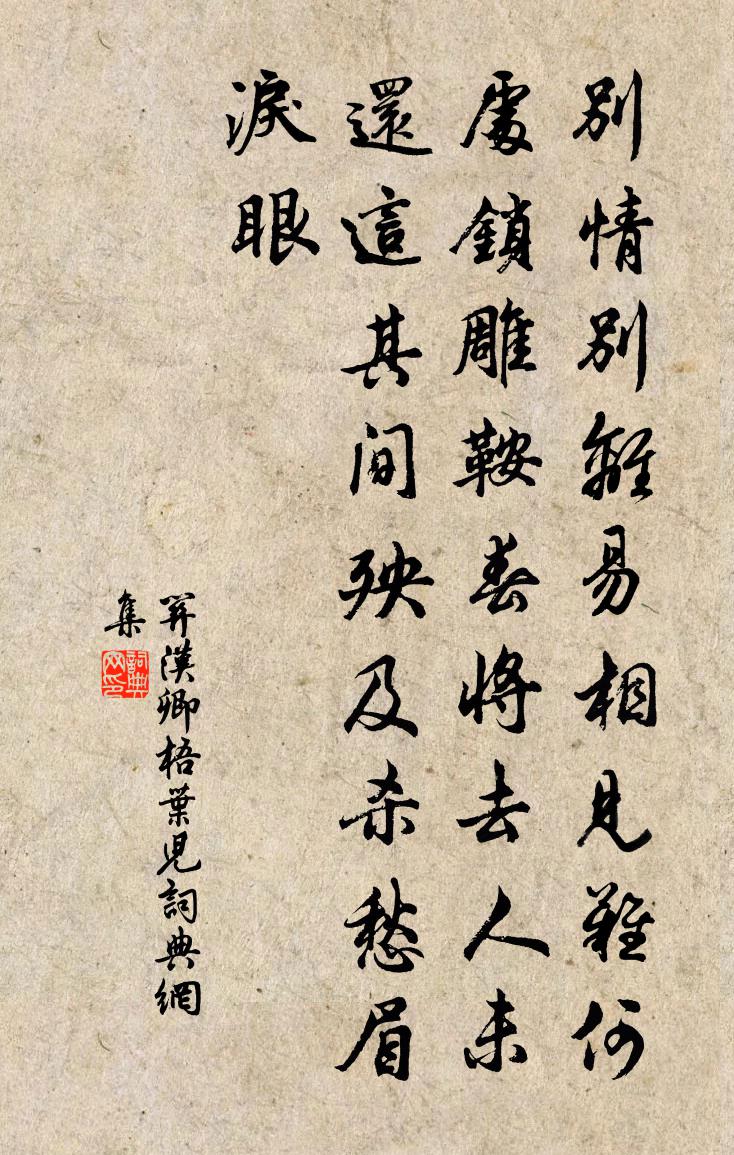 別情別離易相見難何
處鎖雕鞍春將去人未
還這其間殃及杀愁眉
淚眼
関漢卿梧葉児詞典網
集
詞典
网印